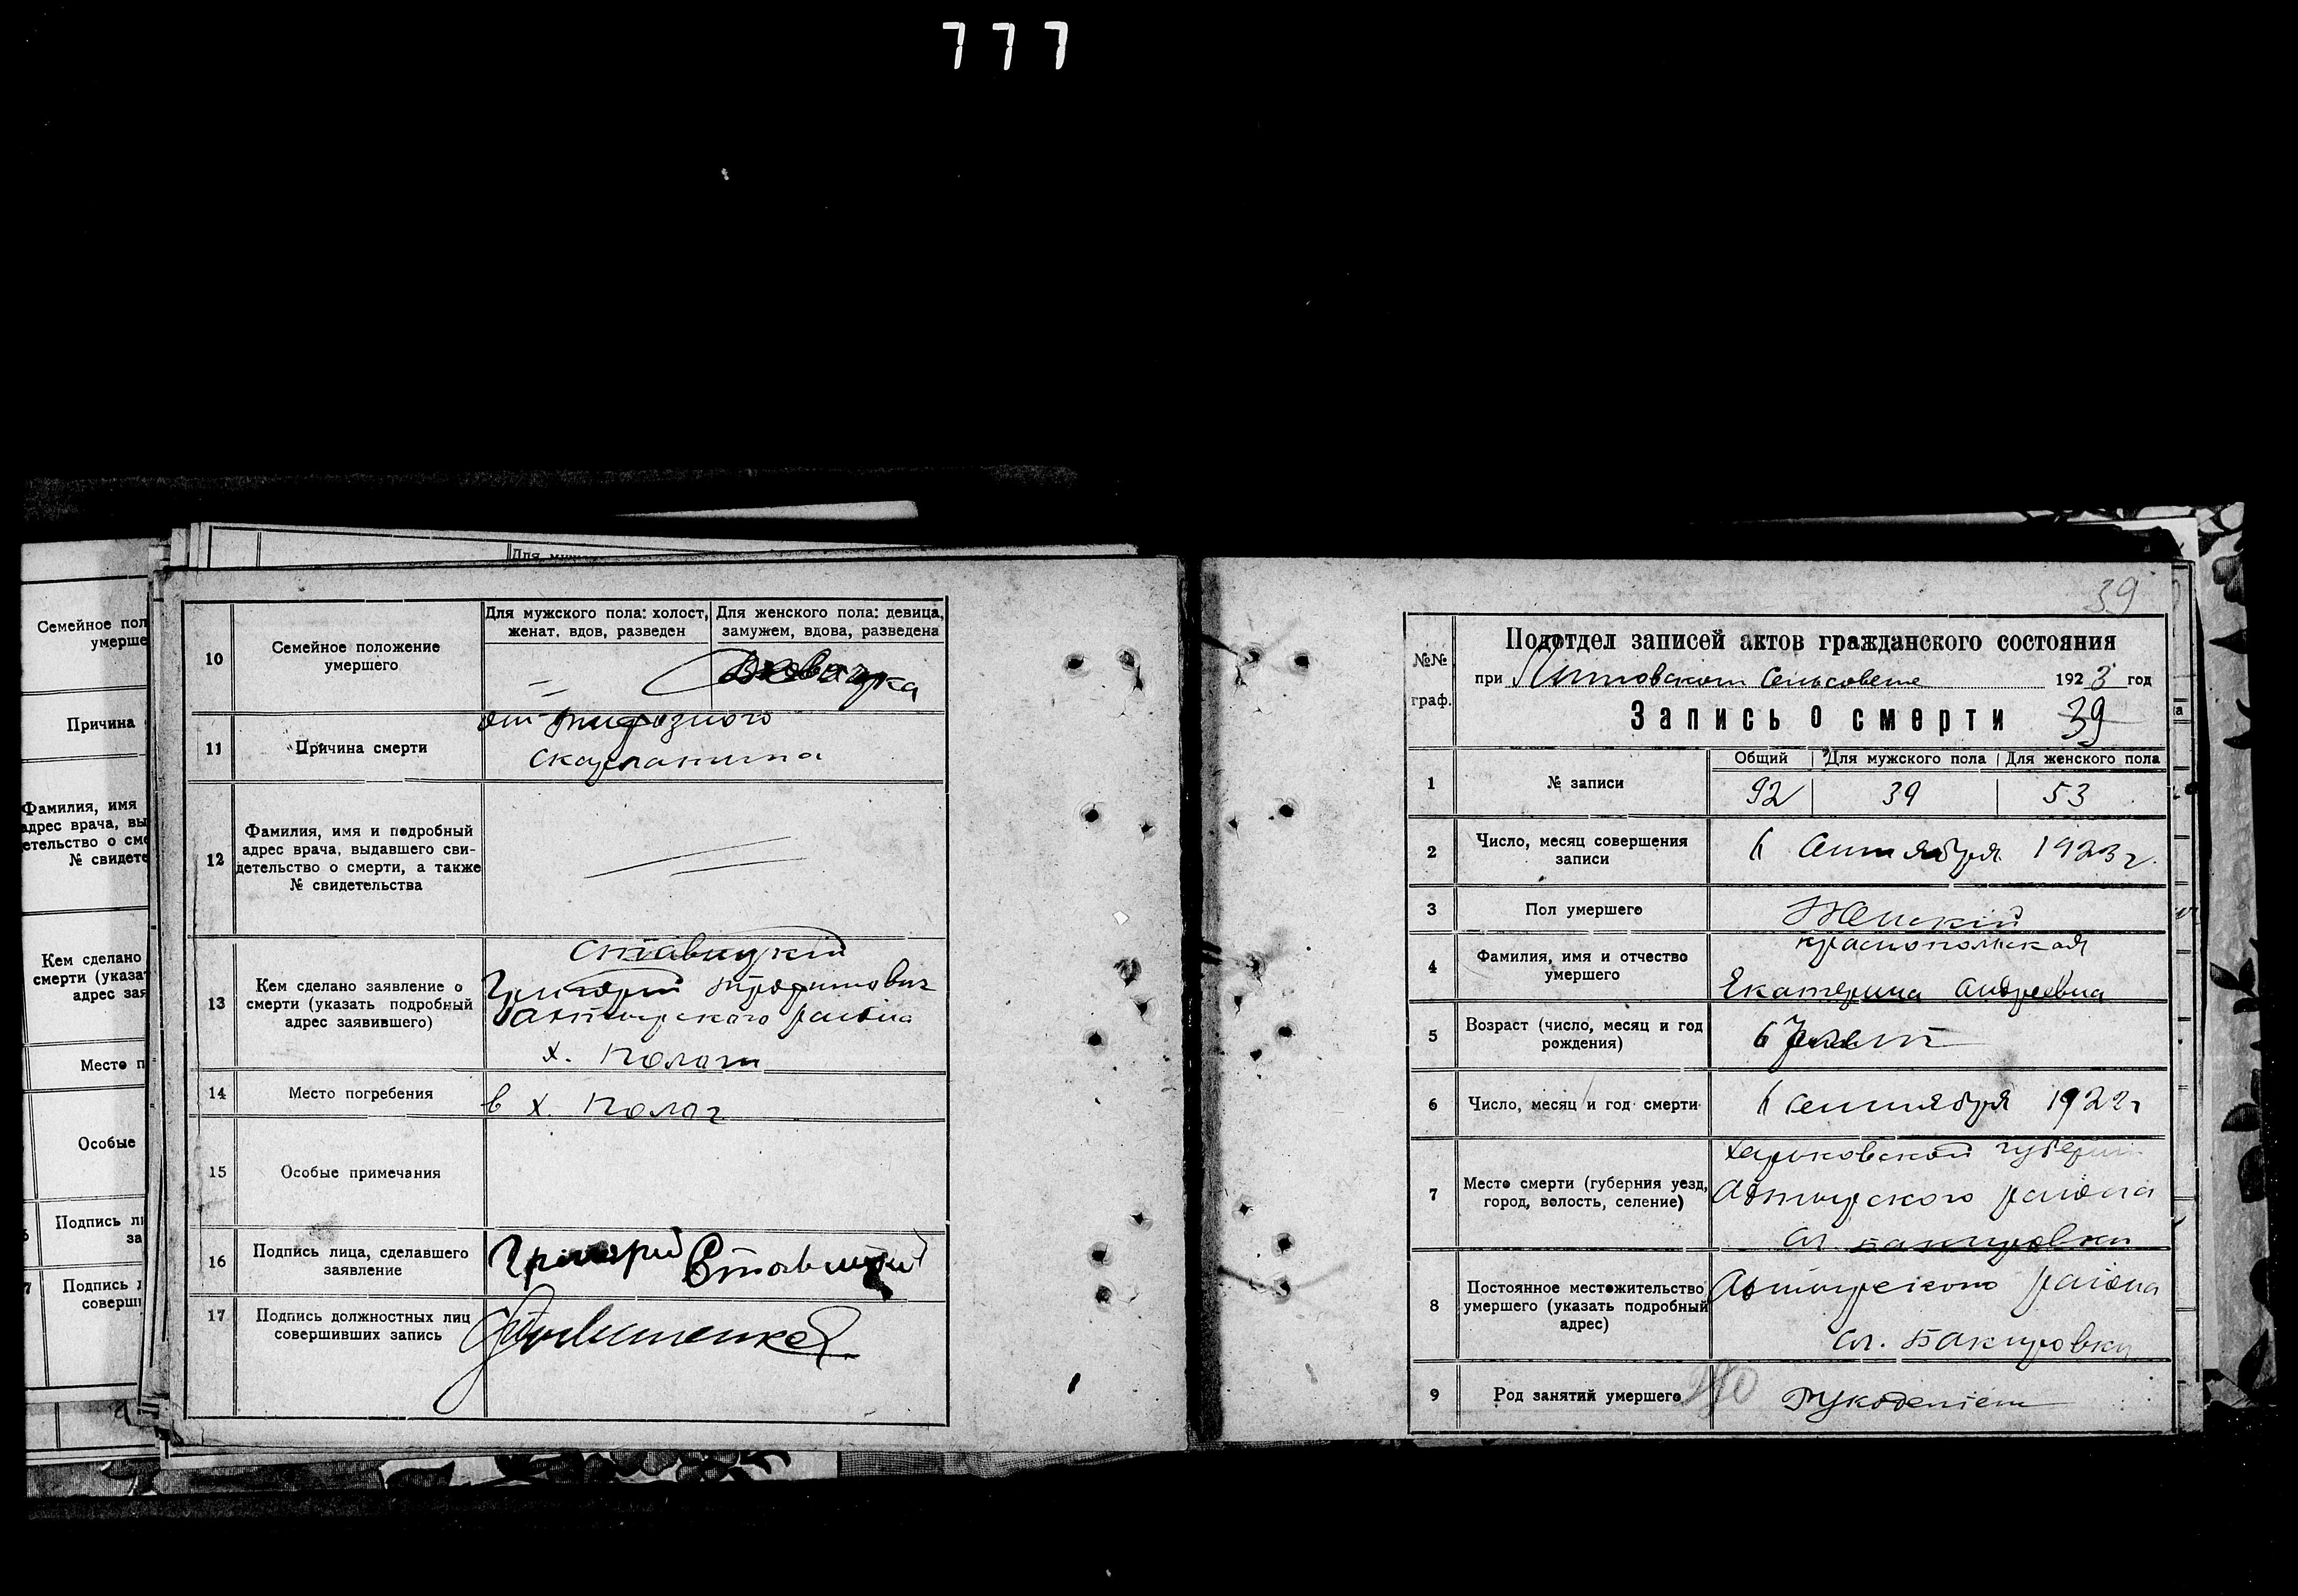 777
Семейное пол
умерше
Причина
Фамилия, имя
адрес врача, вы
етельство о сме
№ свидете
Кем сделано
смерти (указа
адрес зая
Место п
Особые
Подпись ли
за
7 Подпись
соверши
Для муж
Для мужского пола: холост, женат, вдов, разведен
Для женского пола: девица, замужем, вдова, разведена
10 Семейное положение умершего
11 Причина смерти
от тифозного
скарлатина
12 Фамилия, имя и подробный адрес врача, выдавшего сви-
детельство о смерти, а также № свидетельства
13 Кем сделано заявление о смерти (указать подробный адрес заявившего)
Ставицкій
Григорій Трофимович
Ахтырского района
х.
14 Место погребения
в х.
15 Особые примечания
16 Подпись лица, сделавшего заявление
Григорий Ставицкий
17 Подпись должностных лиц совершивших запись
39
№№ граф.
Подотдел записей актов гражданского состояния
при Сельсовете 1923 год
Запись о смерти 39
Общий Для мужского пола Для женского пола
1 № записи 92 39 53
2 Число, месяц совершения записи
6 1923 г.
3 Пол умершего
Женскій
4 Фамилия, имя и отчество умершего
Краснопольская
Екатерина Андреевна
5 Возраст (число, месяц и год рождения)
67 лет
6 Число, месяц и год смерти
6 сентября 1922 г
7 Место смерти (губерния уезд, город, волость, селение)
Харьковской губерн
Ахтырского района
сл. Бакировки
8 Постоянное местожительство умершего (указать подробный адрес)
Ахтырского района
сл. Бакировки
9 Род занятий умершего
Рукоделіем